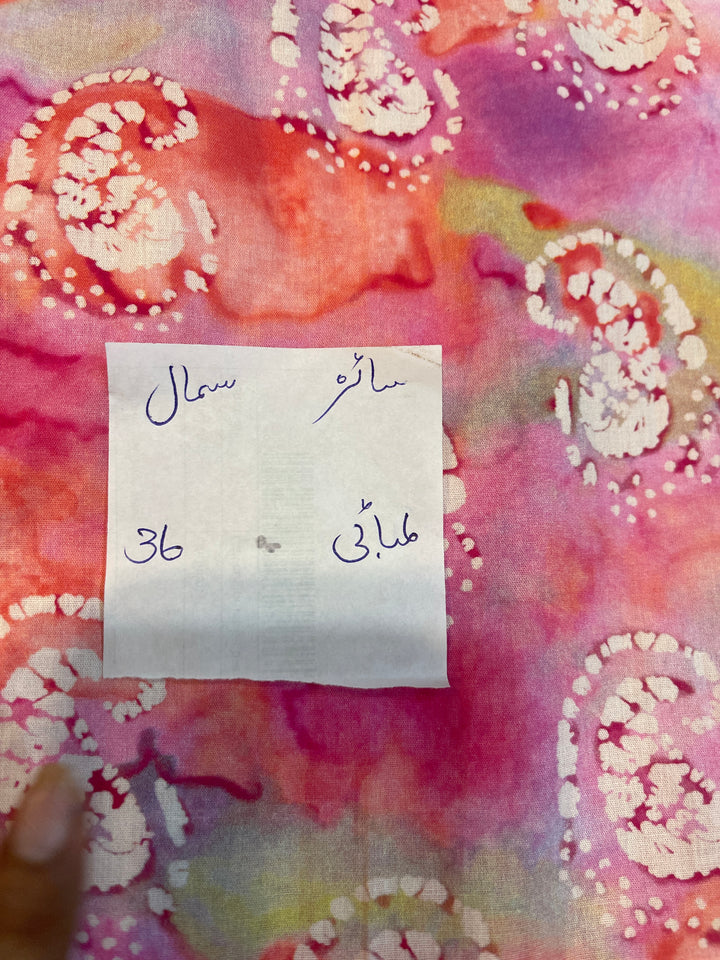 سائز سمال
لمبائی 36